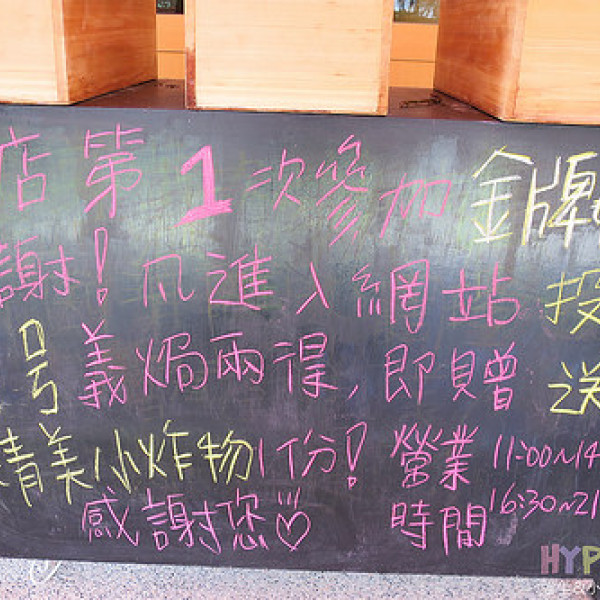 店第1次參加金牌
謝!凡進入網站投
号義焗兩得,即贈送
精美小炸物1份!
感謝您♡
營業時間
11:00~14
16:30~21
HYP